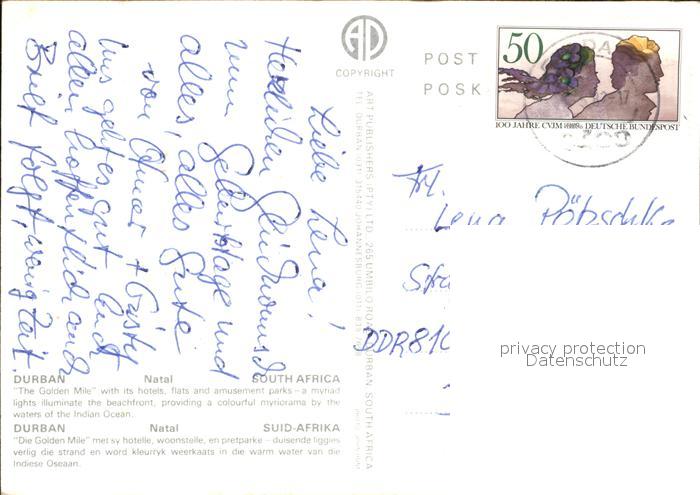 Liebe Lena!
Herzlichen Glückwunsch
zum Geburtstage und
alles, alles Gute
von
Uns geht es gut und
allen hoffentlich auch
Brief folgt, wenig Zeit.
DURBAN Natal SOUTH AFRICA
"The Golden Mile" with its hotels, flats and amusement parks – a myriad
lights illuminate the beachfront, providing a colourful myriorama by the
waters of the Indian Ocean.
DURBAN Natal SUID-AFRIKA
"Die Golden Mile" met sy hotelle, woonstelle, en pretparke – duisende liggies
verlig die strand en word kleurryk weerkaats in die warm water van die
Indiese Oseaan.
COPYRIGHT
ART PUBLISHERS (PTY) LTD. 265 UMBILO ROAD, DURBAN, SOUTH AFRICA
POST
POSK
50
100 JAHRE CVJM DEUTSCHE BUNDESPOST
Frl.
Lena Pötzschke
Stra
DDR 810
privacy protection
Datenschutz